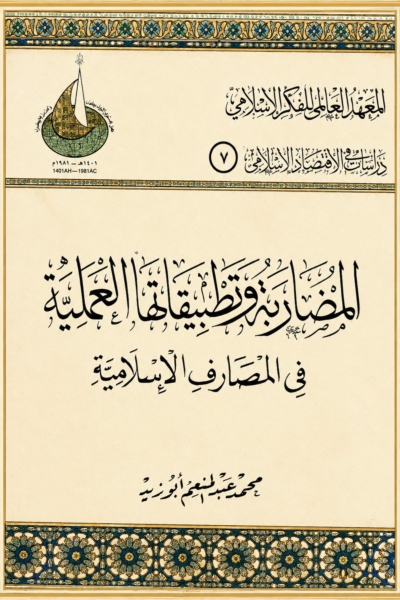 المعهد العالمي للفكر الإسلامي
دراسات في الاقتصاد الإسلامي ٧
١٤٠١هـ – ١٩٨١م
1401AH—1981AC
المضاربة وتطبيقاتها العملية
في المصارف الإسلامية
محمد عبد المنعم أبو زيد